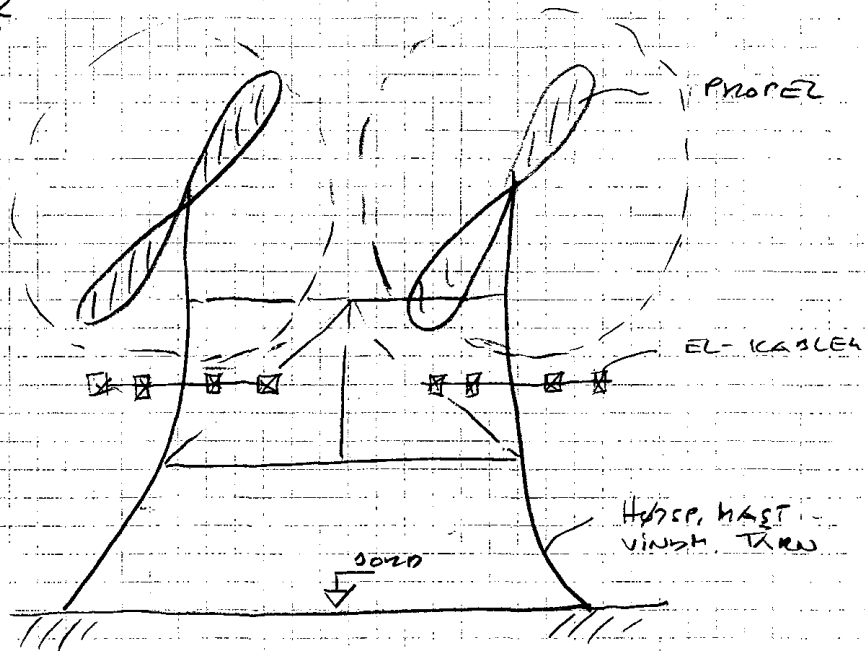 PROPEL
EL-KABLER
HØJSP. MAST
VINDM. TÅRN
JORD